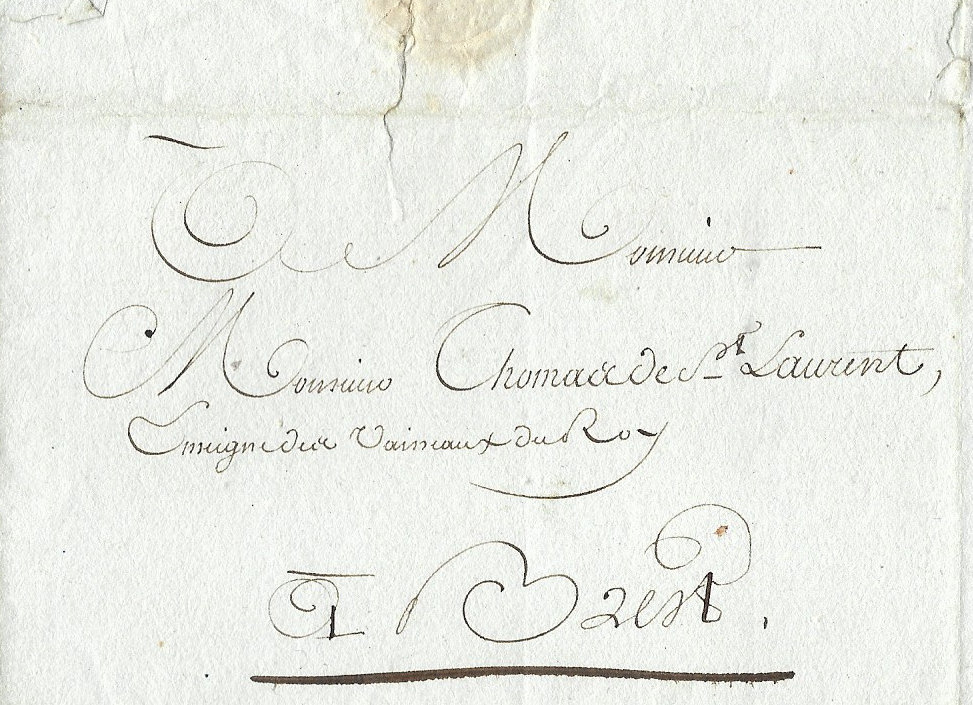 A Monsieur
Monsieur Thomas de St Laurent,
Enseigne des Vaisseaux du Roy
A Brest.